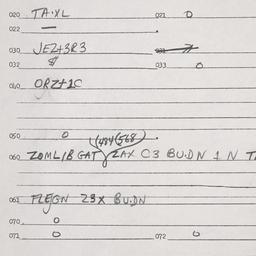 020 TA·XL 021 0
022 —
030 JEZ+3R3
032 033 0
040 ORZ+1C
050 0 (484(568)
060 ZOMLIBGAT ZAX C3 BU.DN 1 N
061 23X BU.DN
070 0
071 0 072 0